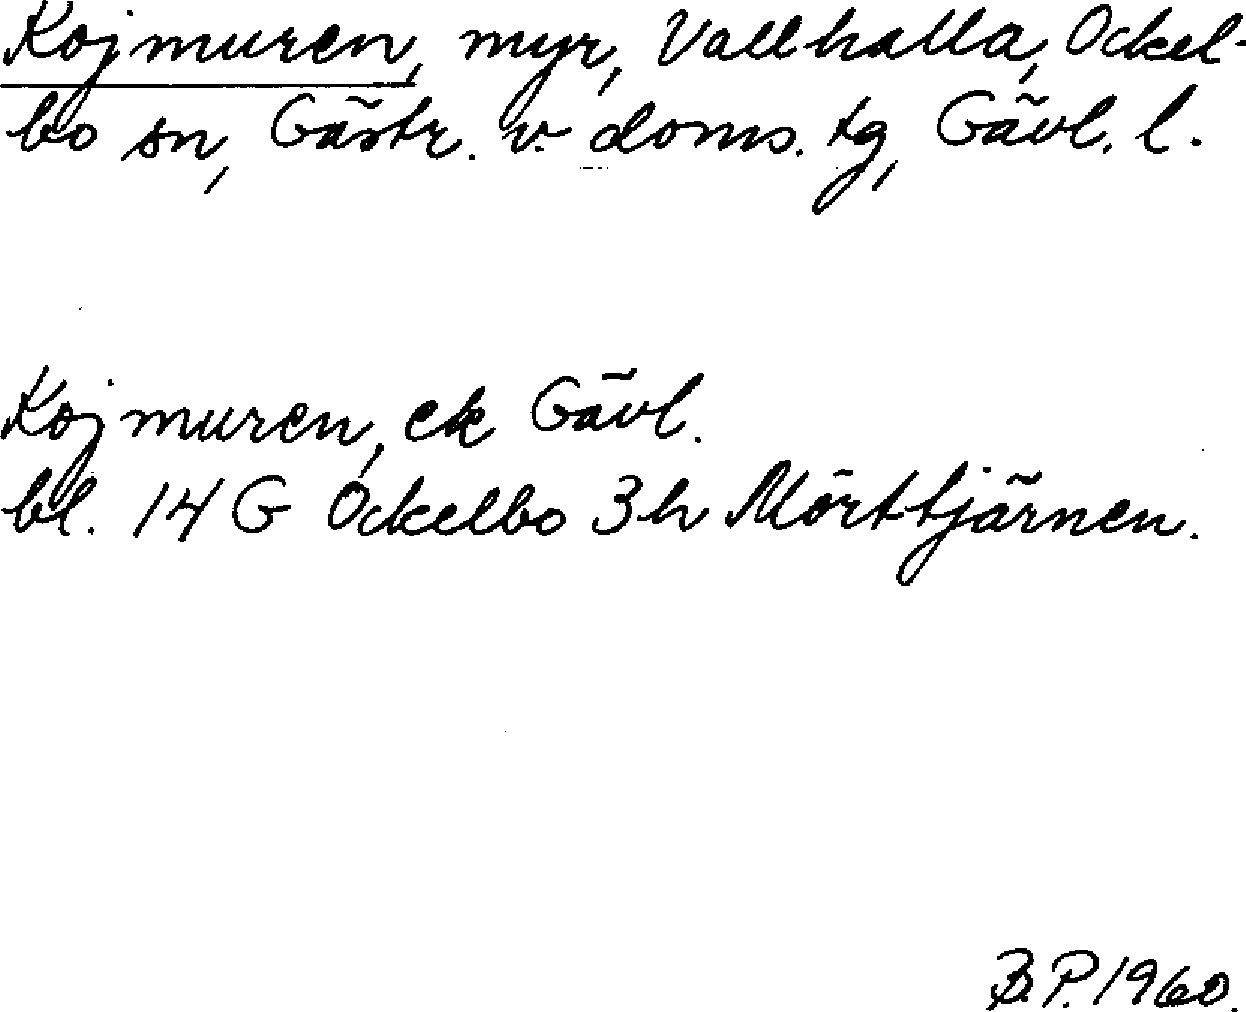 Kojmuren, myr, Vallhalla, Ockel-
bo sn, Gästr. v. doms. tg, Gävl. l.
Kojmuren, ek Gävl.
bl. 14 G Ockelbo 3h Mörttjärnen.
B.P. 1960.